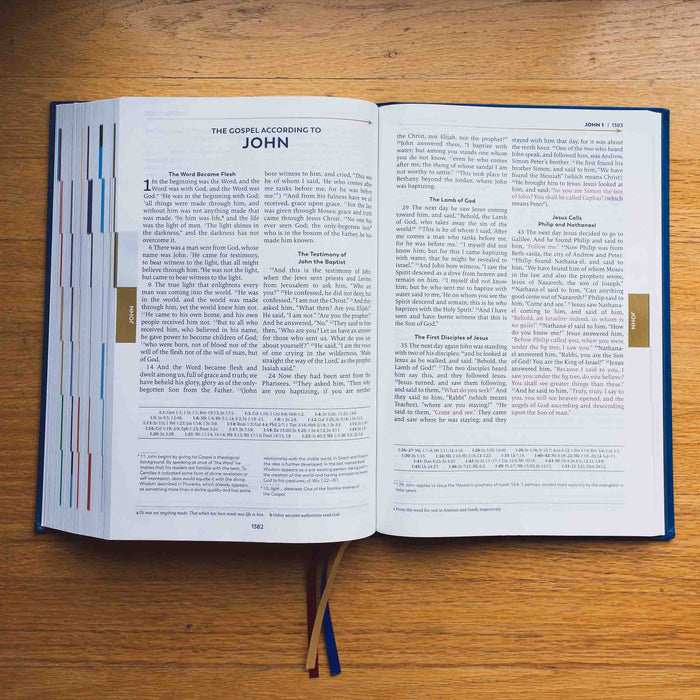 THE GOSPEL ACCORDING TO
JOHN
The Word Became Flesh
1 In the beginning was the Word, and the
Word was with God, and the Word was
God. ²He was in the beginning with God;
³all things were made through him, and
without him was not anything made that
was made. ⁴In him was life, and the life
was the light of men. ⁵The light shines in
the darkness, and the darkness has not
overcome it.
6 There was a man sent from God, whose
name was John. ⁷He came for testimony,
to bear witness to the light, that all might
believe through him. ⁸He was not the light,
but came to bear witness to the light.
9 The true light that enlightens every
man was coming into the world. ¹⁰He was
in the world, and the world was made
through him, yet the world knew him not.
¹¹He came to his own home, and his own
people received him not. ¹²But to all who
received him, who believed in his name,
he gave power to become children of God;
¹³who were born, not of blood nor of the
will of the flesh nor of the will of man, but
of God.
14 And the Word became flesh and
dwelt among us, full of grace and truth; we
have beheld his glory, glory as of the only-
begotten Son from the Father. ¹⁵(John
bore witness to him, and cried, "This was
he of whom I said, 'He who comes after
me ranks before me, for he was before
me.'") ¹⁶And from his fulness have we all
received, grace upon grace. ¹⁷For the law
was given through Moses; grace and truth
came through Jesus Christ. ¹⁸No one has
ever seen God; the only-begotten Son,
who is in the bosom of the Father, he has
made him known.
The Testimony of
John the Baptist
19 And this is the testimony of John,
when the Jews sent priests and Levites
from Jerusalem to ask him, "Who are
you?" ²⁰He confessed, he did not deny, but
confessed, "I am not the Christ." ²¹And they
asked him, "What then? Are you Elijah?"
He said, "I am not." "Are you the prophet?"
And he answered, "No." ²²They said to him
then, "Who are you? Let us have an answer
for those who sent us. What do you say
about yourself?" ²³He said, "I am the voice
of one crying in the wilderness, 'Make
straight the way of the Lord,' as the prophet
Isaiah said."
24 Now they had been sent from the
Pharisees. ²⁵They asked him, "Then why
are you baptizing, if you are neither
JOHN
1382
JOHN 1 | 1383
the Christ, nor Elijah, nor the prophet?"
²⁶John answered them, "I baptize with
water; but among you stands one whom
you do not know, ²⁷even he who comes
after me, the thong of whose sandal I am
not worthy to untie." ²⁸This took place in
Bethany beyond the Jordan, where John
was baptizing.
The Lamb of God
29 The next day he saw Jesus coming
toward him, and said, "Behold, the Lamb
of God, who takes away the sin of the
world! ³⁰This is he of whom I said, 'After
me comes a man who ranks before me,
for he was before me.' ³¹I myself did not
know him; but for this I came baptizing
with water, that he might be revealed to
Israel." ³²And John bore witness, "I saw the
Spirit descend as a dove from heaven and
remain on him. ³³I myself did not know
him; but he who sent me to baptize with
water said to me, 'He on whom you see the
Spirit descend and remain, this is he who
baptizes with the Holy Spirit.' ³⁴And I have
seen and have borne witness that this is
the Son of God."
The First Disciples of Jesus
35 The next day again John was standing
with two of his disciples; ³⁶and he looked at
Jesus as he walked, and said, "Behold, the
Lamb of God!" ³⁷The two disciples heard
him say this, and they followed Jesus.
³⁸Jesus turned, and saw them following,
and said to them, "What do you seek?" And
they said to him, "Rabbi" (which means
Teacher), "where are you staying?" ³⁹He
said to them, "Come and see." They came
and saw where he was staying; and they
stayed with him that day, for it was about
the tenth hour. ⁴⁰One of the two who heard
John speak, and followed him, was Andrew,
Simon Peter's brother. ⁴¹He first found his
brother Simon, and said to him, "We have
found the Messiah" (which means Christ).
⁴²He brought him to Jesus. Jesus looked at
him, and said, "So you are Simon the son
of John? You shall be called Cephas" (which
means Peter).
Jesus Calls
Philip and Nathanael
43 The next day Jesus decided to go to
Galilee. And he found Philip and said to
him, "Follow me." ⁴⁴Now Philip was from
Beth-saida, the city of Andrew and Peter.
⁴⁵Philip found Nathana-el, and said to
him, "We have found him of whom Moses
in the law and also the prophets wrote,
Jesus of Nazareth, the son of Joseph."
⁴⁶Nathana-el said to him, "Can anything
good come out of Nazareth?" Philip said to
him, "Come and see." ⁴⁷Jesus saw Nathana-
el coming to him, and said of him,
"Behold, an Israelite indeed, in whom is
no guile!" ⁴⁸Nathana-el said to him, "How
do you know me?" Jesus answered him,
"Before Philip called you, when you were
under the fig tree, I saw you." ⁴⁹Nathana-
el answered him, "Rabbi, you are the Son
of God! You are the King of Israel!" ⁵⁰Jesus
answered him, "Because I said to you, I
saw you under the fig tree, do you believe?
You shall see greater things than these."
⁵¹And he said to him, "Truly, truly, I say to
you, you will see heaven opened, and the
angels of God ascending and descending
upon the Son of man."
JOHN